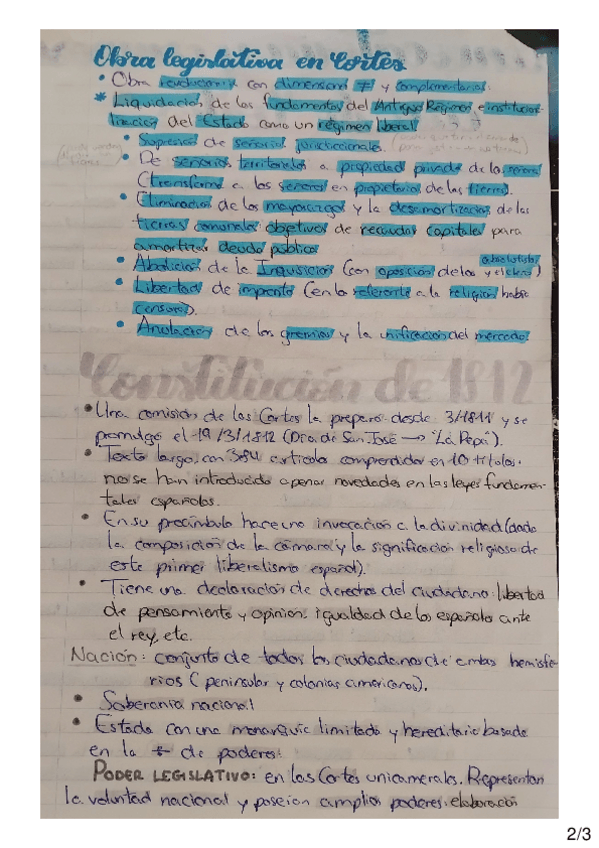 Obra legislativa en Cortes
• Obra revolucionaria con dimensiones ≠ y complementarias:
* Liquidación de los fundamentos del Antiguo Régimen e institucio-
lización del Estado como un régimen liberal.
• Supresión de señoríos jurisdiccionales.
• De señoríos territoriales a propiedad privada de los
(transforma a los señores en propietarios de las tierras).
• Eliminación de los mayorazgos y la desamortización de las
tierras comunales objetivos de recaudar capitales para
amortizar deuda pública
• Abolición de la Inquisición (con oposición de los absolutistas y el clero)
• Libertad de imprenta (en lo referente a la religión había
censura).
• Anulación de los gremios y la unificación del mercado.
Constitución de 1812
• Una comisión de las Cortes la preparó desde 3/1811 y se
promulgó el 19/3/1812 (Día de San José → "La Pepa").
• Texto largo, con 384 artículos comprendidos en 10 títulos.
no se han introducido apenas novedades en las leyes fundamen-
tales españolas.
• En su preámbulo hace una invocación a la divinidad (dada
la composición de la cámara y la significación religiosa de
este primer liberalismo español).
• Tiene una declaración de derechos del ciudadano: libertad
de pensamiento y opinión, igualdad de los españoles ante
el rey, etc.
Nación: conjunto de todos los ciudadanos de ambos hemisfe-
rios (peninsular y colonias americanas).
• Soberanía nacional
• Estado con una monarquía limitada y hereditaria basada
en la ≠ de poderes:
PODER LEGISLATIVO: en las Cortes unicamerales. Representan
la voluntad nacional y poseían amplios poderes: elaboración
2/3